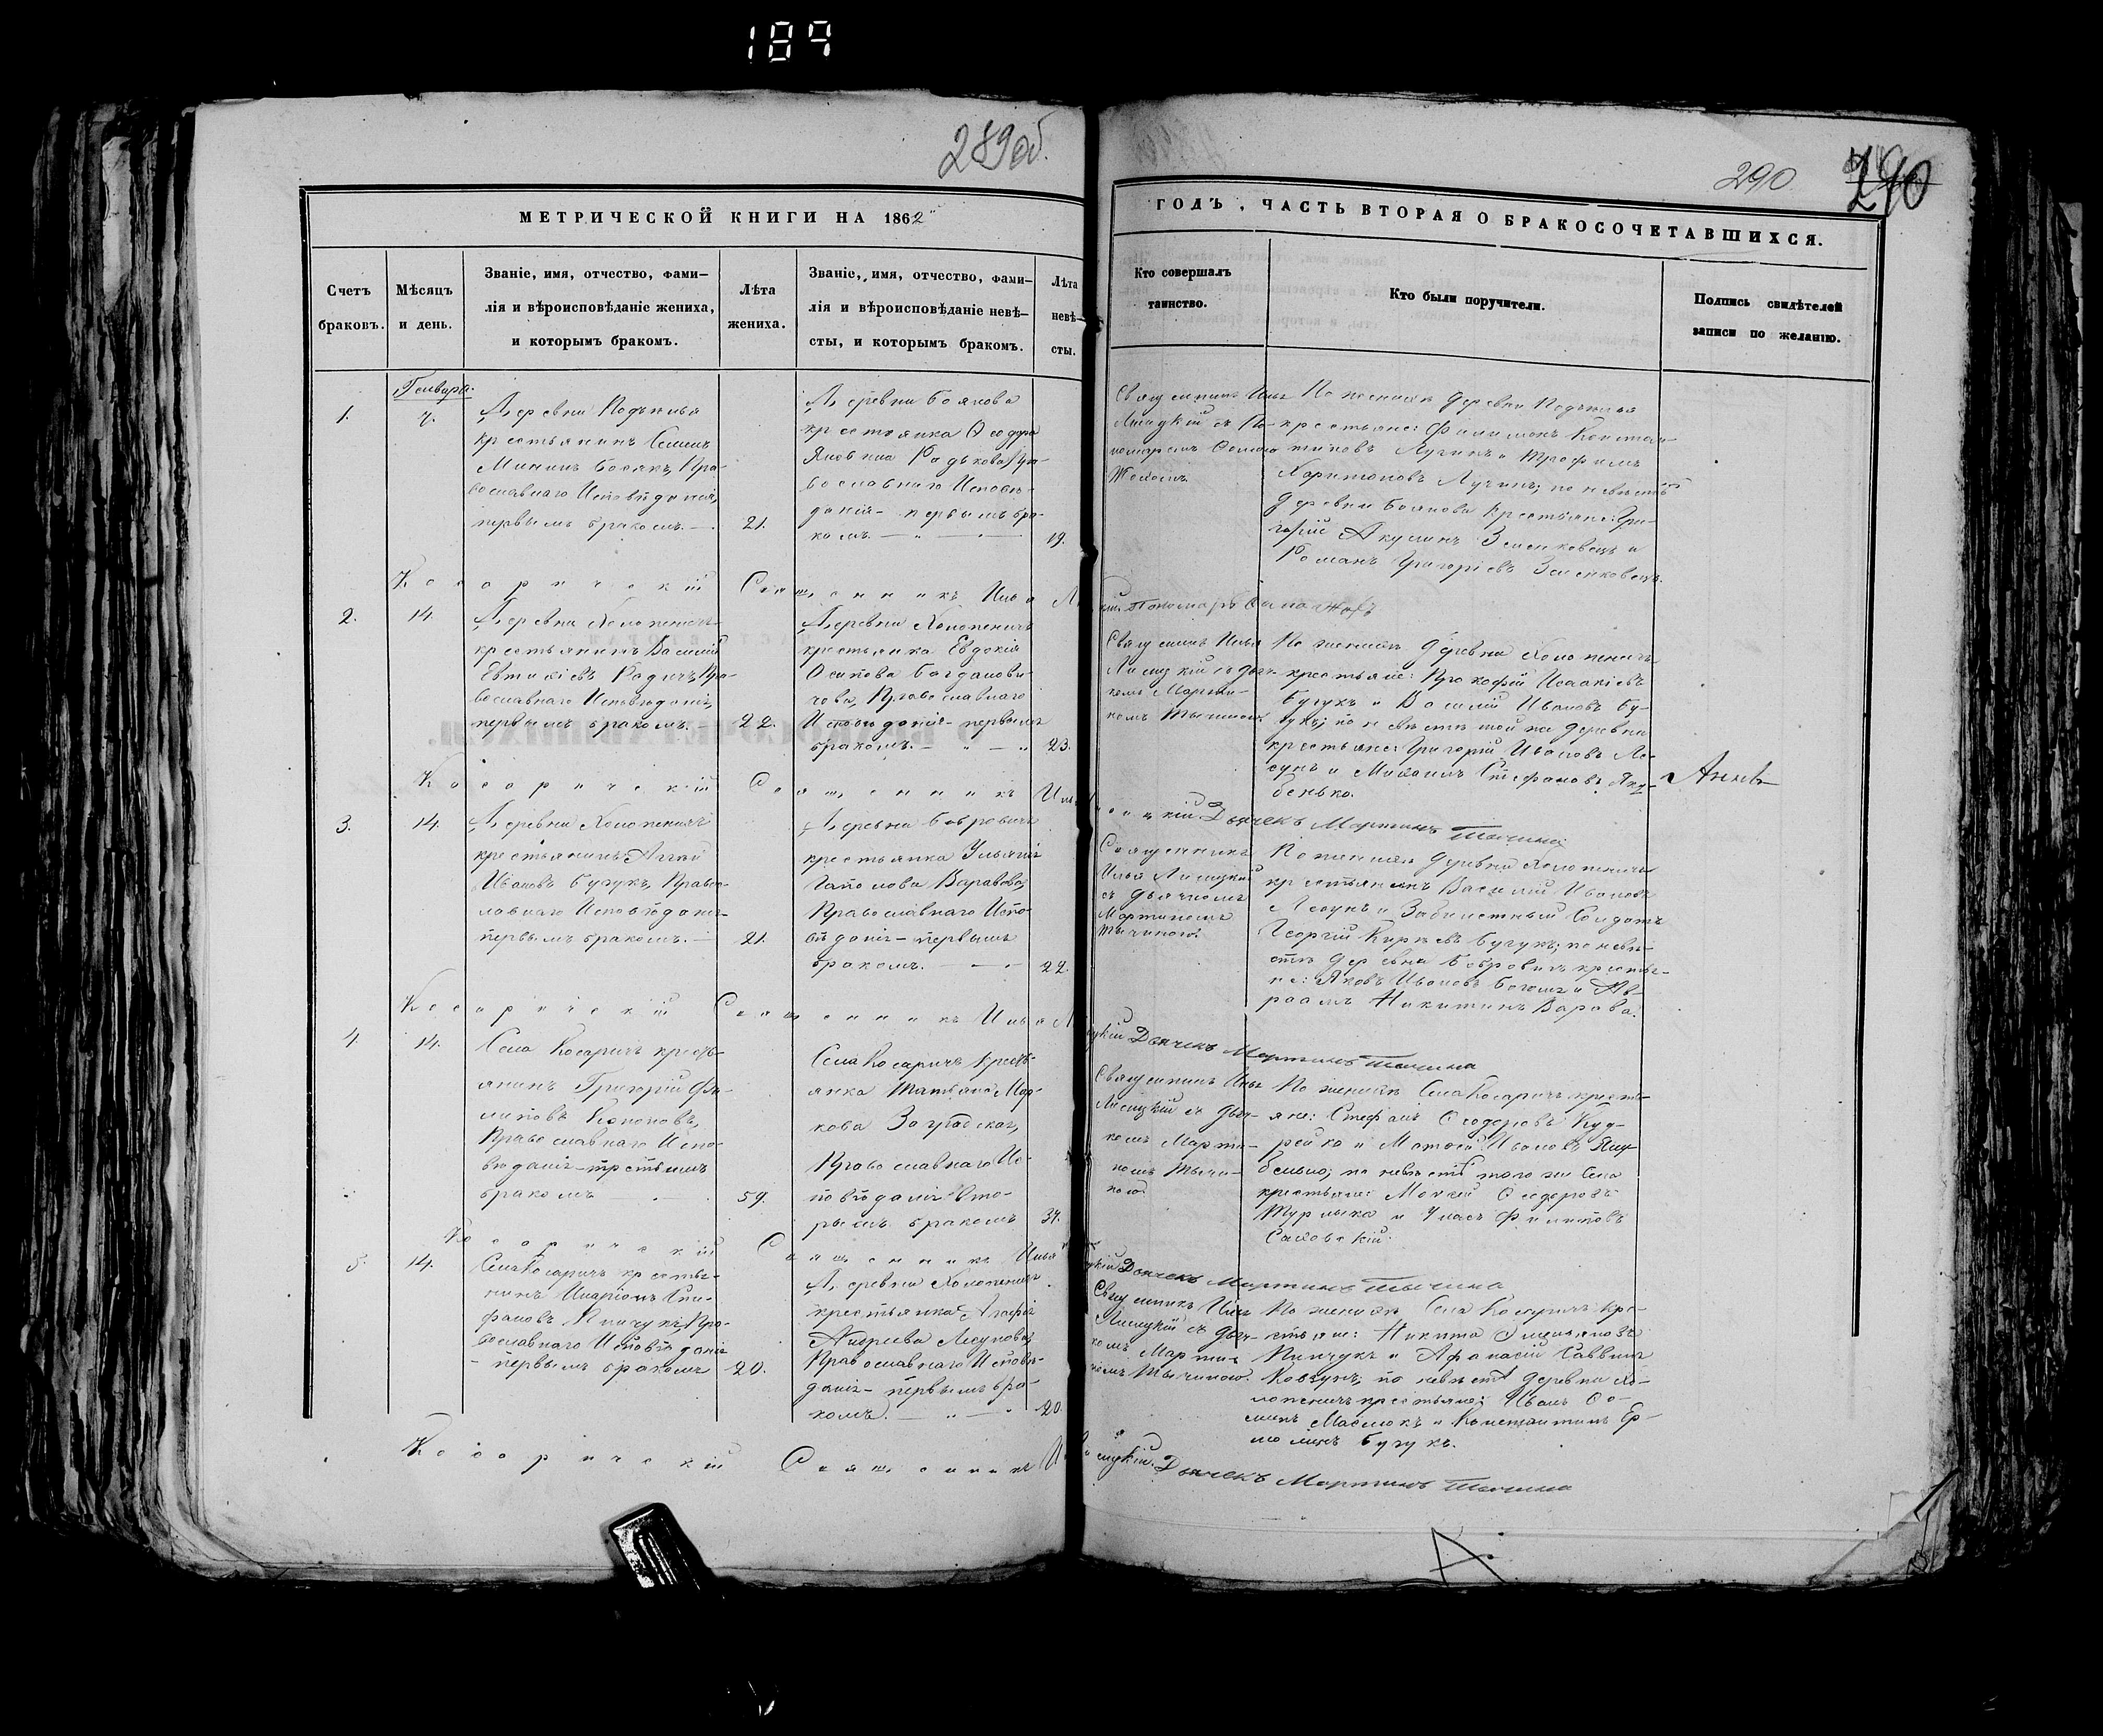 189
289об.
290
290
МЕТРИЧЕСКОЙ КНИГИ НА 1862
ГОДЪ, ЧАСТЬ ВТОРАЯ О БРАКОСОЧЕТАВШИХСЯ.
Счетъ
браковъ.
Мѣсяцъ
и день.
Званіе, имя, отчество, фами-
лія и вѣроисповѣданіе жениха,
и которымъ бракомъ.
Лѣта
жениха.
Званіе, имя, отчество, фами-
лія и вѣроисповѣданіе невѣ-
сты, и которымъ бракомъ.
Лѣта
невѣ-
сты.
Кто совершалъ
таинство.
Кто были поручители.
Подпись свидѣтелей
записи по желанію.
Генваря.
1.
7.
Деревни
крестьянинъ Семенъ
Мининъ Босякъ, Пра-
вославнаго Исповѣданія,
первымъ бракомъ.
21.
Деревни Боянова
крестьянка Ѳеодора
Радькова, Пра-
вославнаго Исповѣ-
данія - первымъ бра-
комъ.
19.
Священникъ Илья
Лисицкій съ По-
номаремъ
По женихѣ деревни
крестьяне: Филимонъ Констан-
тиновъ Лучинъ и Трофимъ
Харитоновъ Лучинъ; по невѣстѣ
деревни Боянова крестьяне: Гри-
горій Акулинъ Зменковецъ и
Романъ Григоріевъ Зменковецъ.
Косаричскій Священникъ Илья Лисицкій. Пономарь
2.
14.
Деревни Холопеничъ
крестьянинъ Василій
Евтихіевъ Радичъ, Пра-
вославнаго Исповѣданія,
первымъ бракомъ.
22.
Деревни Холопеничъ
крестьянка Евдокія
Осипова Богданови-
чова, Православнаго
Исповѣданія - первымъ
бракомъ.
23.
Священникъ Илья
Лисицкій съ дьяч-
комъ Марти-
номъ Тычиною.
По женихѣ деревни Холопеничъ
крестьяне: Прокофій Исаакіевъ
Бугукъ и Василій Ивановъ Бу-
гукъ; по невѣстѣ той же деревни
крестьяне: Григорій Ивановъ Ле-
сунъ и Михаилъ Стефановъ Яку-
бенько.
Косаричскій Священникъ Илья Лисицкій. Дьячекъ Мартинъ Тычина
3.
14.
Деревни Холопеничъ
крестьянинъ
Ивановъ Бугукъ, Правос-
лавнаго Исповѣданія-
первымъ бракомъ.
21.
Деревни Бобровичъ
крестьянка Ульянія
Гапонова Варавова,
Православнаго Испо-
вѣданія - первымъ
бракомъ.
22.
Священникъ
Илья Лисицкій
съ дьячкомъ
Мартиномъ
Тычиною.
По женихѣ деревни Холопеничъ
крестьянинъ Василій Ивановъ
Лесунъ и Забилетный Солдатъ
Георгій Киріевъ Бугукъ; по невѣ-
стѣ деревни Бобровичъ крестья-
не: Яковъ Ивановъ и Ав-
раамъ Никитинъ Варава.
Косаричскій Священникъ Илья Лисицкій Дьячекъ Мартинъ Тычина
4
14.
Села Косаричъ кресть-
янинъ Григорій Фи-
липовъ Кононовъ,
Православнаго Испо-
вѣданія - третьимъ
бракомъ
59.
Села Косаричъ кресть-
янка Татьяна Мар-
кова
Православнаго Ис-
повѣданія Вто-
рымъ бракомъ
34.
Священникъ Илья
Лисицкій съ дьяч-
комъ Марти-
номъ Тычи-
ною.
По женихѣ Села Косаричъ кресть-
яне: Стефанъ Ѳеодоровъ Куд-
рейко и Матѳей Ивановъ Яку-
бенько; по невѣстѣ того же Села
крестьяне: Моисей Ѳеодоровъ
Турлыка и Уласъ Филиповъ
Саковскій.
Косаричскій Священникъ Илья Лисицкій Дьячекъ Мартинъ Тычина
5.
14.
Села Косаричъ крестья-
нинъ Иларіонъ Сте-
фановъ Пинчукъ, Пра-
вославнаго Исповѣданія
- первымъ бракомъ
20.
Деревни Холопеничъ
крестьянка Агафія
Андреева Лесунова,
Православнаго Исповѣ-
данія - первымъ бра-
комъ.
20.
Священникъ Илья
Лисицкій съ дьяч-
комъ Марти-
номъ Тычиною.
По женихѣ Села Косаричъ кре-
стьяне: Никита Емельяновъ
Пинчукъ и Афанасій Саввинъ
Ковзунъ; по невѣстѣ деревни Хо-
лопеничъ крестьяне: Иванъ
Маслюкъ и Константинъ Ер-
молинъ Бугукъ.
Косаричскій Священникъ Илья Лисицкій. Дьячекъ Мартинъ Тычина